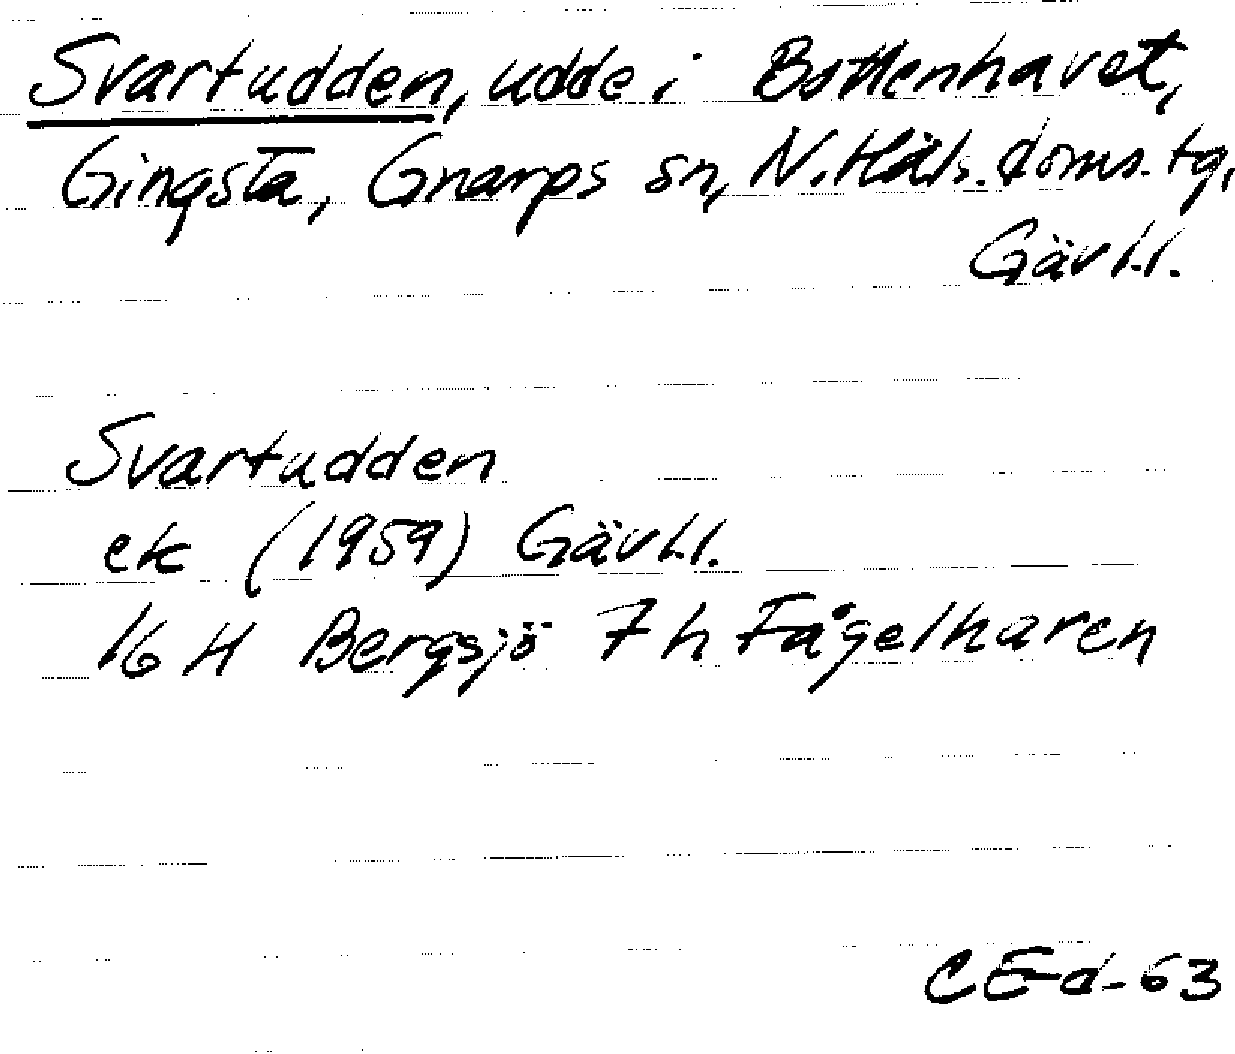 Svartudden, udde i Bottenhavet,
Gingsta, Gnarps sn, N. Häls. doms. tg,
Gävl.l.
Svartudden
ek (1959) Gävl.l.
16 H Bergsjö 7 h Fågelharen
CEd-63